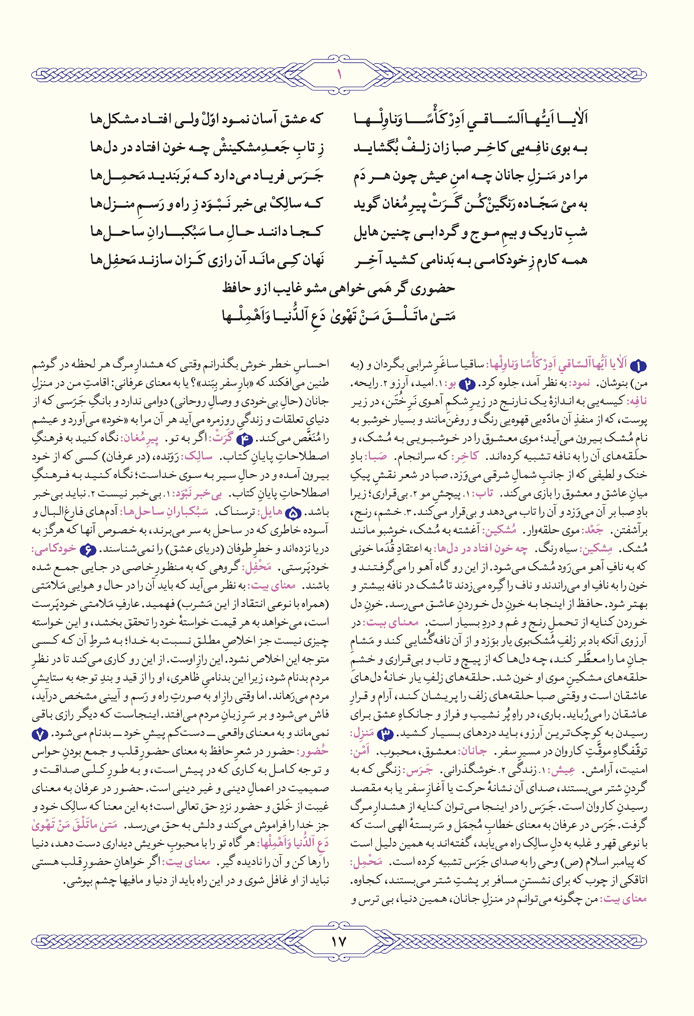 ۱
اَلایا اَیُّها ٱلسّاقي اَدِرْ کَأْسًا وَناوِلْها که عشق آسان نمود اوّلْ ولی افتاد مشکل‌ها
به بوی نافه‌یی کاخِر صبا زان زلفْ بُگشاید ز تابِ جَعدِ مشکینشْ چه خون افتاد در دل‌ها
مرا در مَنزلِ جانان چه امنِ عیش چون هر دَم جَرَس فریاد می‌دارد که بَربَندید مَحمِل‌ها
به می سَجّاده رَنگین‌کُن گَرَتْ پیرِ مُغان گوید که سالِک بی‌خبر نَبْوَد ز راه و رَسمِ منزل‌ها
شبِ تاریک و بیمِ موج و گردابی چنین هایل کجا دانند حالِ ما سَبُکبارانِ ساحل‌ها
همه کارم ز خودکامی به بَدنامی کشید آخِر نَهان کِی مانَد آن رازی کَزان سازند مَحفِل‌ها
حضوری گر هَمی خواهی مشو غایب ازو حافظ
مَتیٰ ماتَلْقَ مَنْ تَهْویٰ دَعِ ٱلدُّنیا وَاَهْمِلْها
۱ اَلایا اَیُّها ٱلسّاقي اَدِرْ کَأْسًا وَناوِلْها: ساقیا ساغَرِ شرابی بگردان و (به
من) بنوشان. نمود: به نظر آمد، جلوه کرد. ۲ بو: ۱. امید، آرزو ۲. رایحه.
نافه: کیسه‌یی به اندازهٔ یک نارنج در زیر شکمِ آهوی نَرِ خُتَن، در زیر
پوست، که از منفذِ آن مادّه‌یی قهوه‌یی رنگ و روغن‌مانند و بسیار خوشبو به
نامِ مُشک بیرون می‌آید؛ موی معشوق را در خوشبویی به مُشک، و
حلقه‌های آن را به نافه تشبیه کرده‌اند. کاخِر: که سرانجام. صَبا: بادِ
خنک و لطیفی که از جانبِ شمالِ شرقی می‌وَزد. صبا در شعر نقشِ پیکِ
میانِ عاشق و معشوق را بازی می‌کند. تاب: ۱. پیچشِ مو ۲. بی‌قراری؛ زیرا
بادِ صبا بر آن می‌وَزد و آن را تاب می‌دهد و بی‌قرار می‌کند. ۳. خشم، رنج،
برآشفتن. جَعْد: موی حلقه‌وار. مُشکین: آغشته به مُشک، خوشبو مانندِ
مُشک. مِشکین: سیاه رنگ. چه خون افتاد در دل‌ها: به اعتقادِ قُدَما خونی
که به نافِ آهو می‌رَود مُشک می‌شود. از این رو گاه آهو را می‌گرفتند و
خون را به نافِ او می‌راندند و ناف را گِره می‌زدند تا مُشک در نافه بیشتر و
بهتر شود. حافظ از اینجا به خونِ دل خوردنِ عاشق می‌رسد. خونِ دل
خوردن کنایه از تحملِ رنج و غم و دردِ بسیار است. معنای بیت: در
آرزوی آنکه باد بر زلفِ مُشک‌بوی یار بوَزد و از آن نافه‌گُشایی کند و مَشامِ
جانِ ما را معطَّر کند، چه دل‌ها که از پیچ و تاب و بی‌قراری و خشمِ
حلقه‌های مشکینِ موی او خون شد. حلقه‌های زلفِ یار خانهٔ دل‌های
عاشقان است و وقتی صبا حلقه‌های زلف را پریشان کند، آرام و قرارِ
عاشقان را می‌رُباید. باری، در راهِ پُر نشیب و فراز و جانکاهِ عشق برای
رسیدن به کوچک‌ترین آرزو، باید دردهای بسیار کشید. ۳ مَنزِل:
توقّفگاهِ موقّتِ کاروان در مسیرِ سفر. جانان: معشوق، محبوب. اَمْن:
امنیت، آرامش. عِیش: ۱. زندگی ۲. خوشگذرانی. جَرَس: زنگی که به
گردنِ شتر می‌بستند، صدای آن نشانهٔ حرکت یا آغازِ سفر یا به مقصد
رسیدنِ کاروان است. جَرَس را در اینجا می‌توان کنایه از هشدارِ مرگ
گرفت. جَرَس در عرفان به معنای خطابِ مُجمَل و سَربستهٔ الهی است که
با نوعی قهر و غلبه به دلِ سالِک راه می‌یابد، گفته‌اند به همین دلیل است
که پیامبر اسلام (ص) وحی را به صدای جَرَس تشبیه کرده است. مَحْمِل:
اتاقکی از چوب که برای نشستنِ مسافر بر پشتِ شتر می‌بستند، کجاوه.
معنای بیت: من چگونه می‌توانم در منزلِ جانان، همین دنیا، بی ترس و
احساسِ خطر خوش بگذرانم وقتی که هشدارِ مرگ هر لحظه در گوشم
طنین می‌افکند که «بارِ سفر بِبَند»؟ یا به معنای عرفانی: اقامتِ من در منزلِ
جانان (حالِ بی‌خودی و وصالِ روحانی) دوامی ندارد و بانگِ جَرَسی که از
دنیای تعلقات و زندگیِ روزمره می‌آید هر آن مرا به «خود» می‌آورد و عیشم
را مُنَغَّص می‌کند. ۴ گَرَتْ: اگر به تو. پیرِ مُغان: نگاه کنید به فرهنگِ
اصطلاحاتِ پایانِ کتاب. سالِک: رَوَنده، (در عرفان) کسی که از خود
بیرون آمده و در حالِ سیر به سوی خداست؛ نگاه کنید به فرهنگِ
اصطلاحاتِ پایانِ کتاب. بی‌خبر نَبْوَد: ۱. بی‌خبر نیست ۲. نباید بی‌خبر
باشد. ۵ هایِل: ترسناک. سَبُکبارانِ ساحل‌ها: آدم‌های فارغ‌البال و
آسوده خاطری که در ساحل به سر می‌برند، به خصوص آنها که هرگز به
دریا نزده‌اند و خطرِ طوفان (دریای عشق) را نمی‌شناسند. ۶ خودکامی:
خودپَرستی. مَحْفِل: گروهی که به منظورِ خاصی در جایی جمع شده
باشند. معنای بیت: به نظر می‌آید که باید آن را در حال و هوایی مَلامَتی
(همراه با نوعی انتقاد از این مَشرب) فهمید. عارفِ مَلامَتی خودپَرست
است، می‌خواهد به هر قیمت خواستهٔ خود را تحقق بخشد، و این خواسته
چیزی نیست جز اخلاصِ مطلق نسبت به خدا؛ به شرطِ آن که کسی
متوجه این اخلاص نشود. این رازِ اوست. از این رو کاری می‌کند تا در نظرِ
مردم بدنام شود، زیرا این بدنامیِ ظاهری، او را از قید و بندِ توجه به ستایشِ
مردم می‌رَهاند. اما وقتی رازِ او به صورتِ راه و رَسم و آیینی مشخص درآید،
فاش می‌شود و بر سَرِ زبانِ مردم می‌افتد. اینجاست که دیگر رازی باقی
نمی‌ماند و به معنای واقعی ـــ دست‌کم پیشِ خود ـــ بدنام می‌شود. ۷
حُضور: حضور در شعرِ حافظ به معنای حضورِ قلب و جمع بودنِ حواس
و توجه کامل به کاری که در پیش است، و به طورِ کلی صداقت و
صمیمیت در اعمالِ دینی و غیر دینی است. حضور در عرفان به معنای
غیبت از خَلق و حضور نزدِ حق تعالی است؛ به این معنا که سالِک خود و
جز خدا را فراموش می‌کند و دلش به حق می‌رسد. مَتیٰ ماتَلْقَ مَنْ تَهْویٰ
دَعِ ٱلدُّنیا وَاَهْمِلْها: هر گاه تو را با محبوبِ خویش دیداری دست دهد، دنیا
را رها کن و آن را نادیده گیر. معنای بیت: اگر خواهانِ حضورِ قلب هستی
نباید از او غافل شوی و در این راه باید از دنیا و مافیها چشم بپوشی.
۱۷